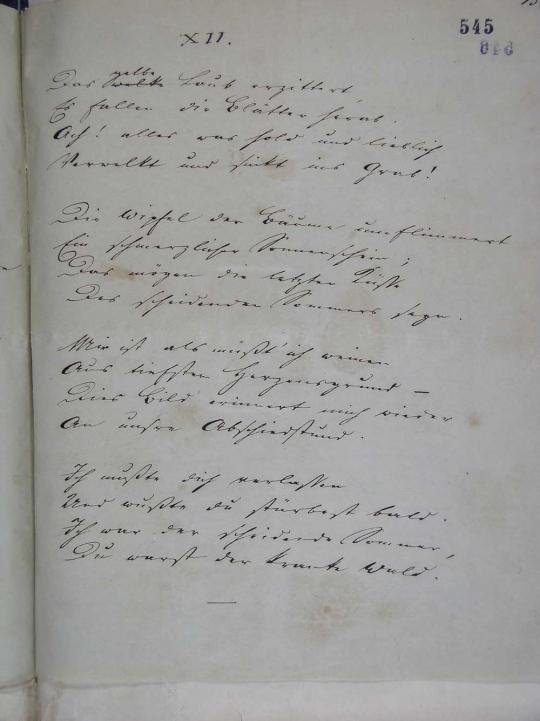 545
646
XII.
Das gelbe welke Laub erzittert,
Es fallen die Blätter herab.
Ach! alles was hold und lieblich
Verwelkt und sinkt ins Grab!
Die Wipfel der Bäume umflimmert
Ein schmerzlicher Sonnenschein;
Das mögen die letzten Küsse
Des scheidenden Sommers seyn.
Mir ist als müßt' ich weinen
Aus tiefstem Herzensgrund –
Dies Bild erinnert mich wieder
An unsre Abschiedstund.
Ich mußte dich verlassen
Und wußte du stürbest bald.
Ich war der scheidende Sommer,
Du warst der kranke Wald.